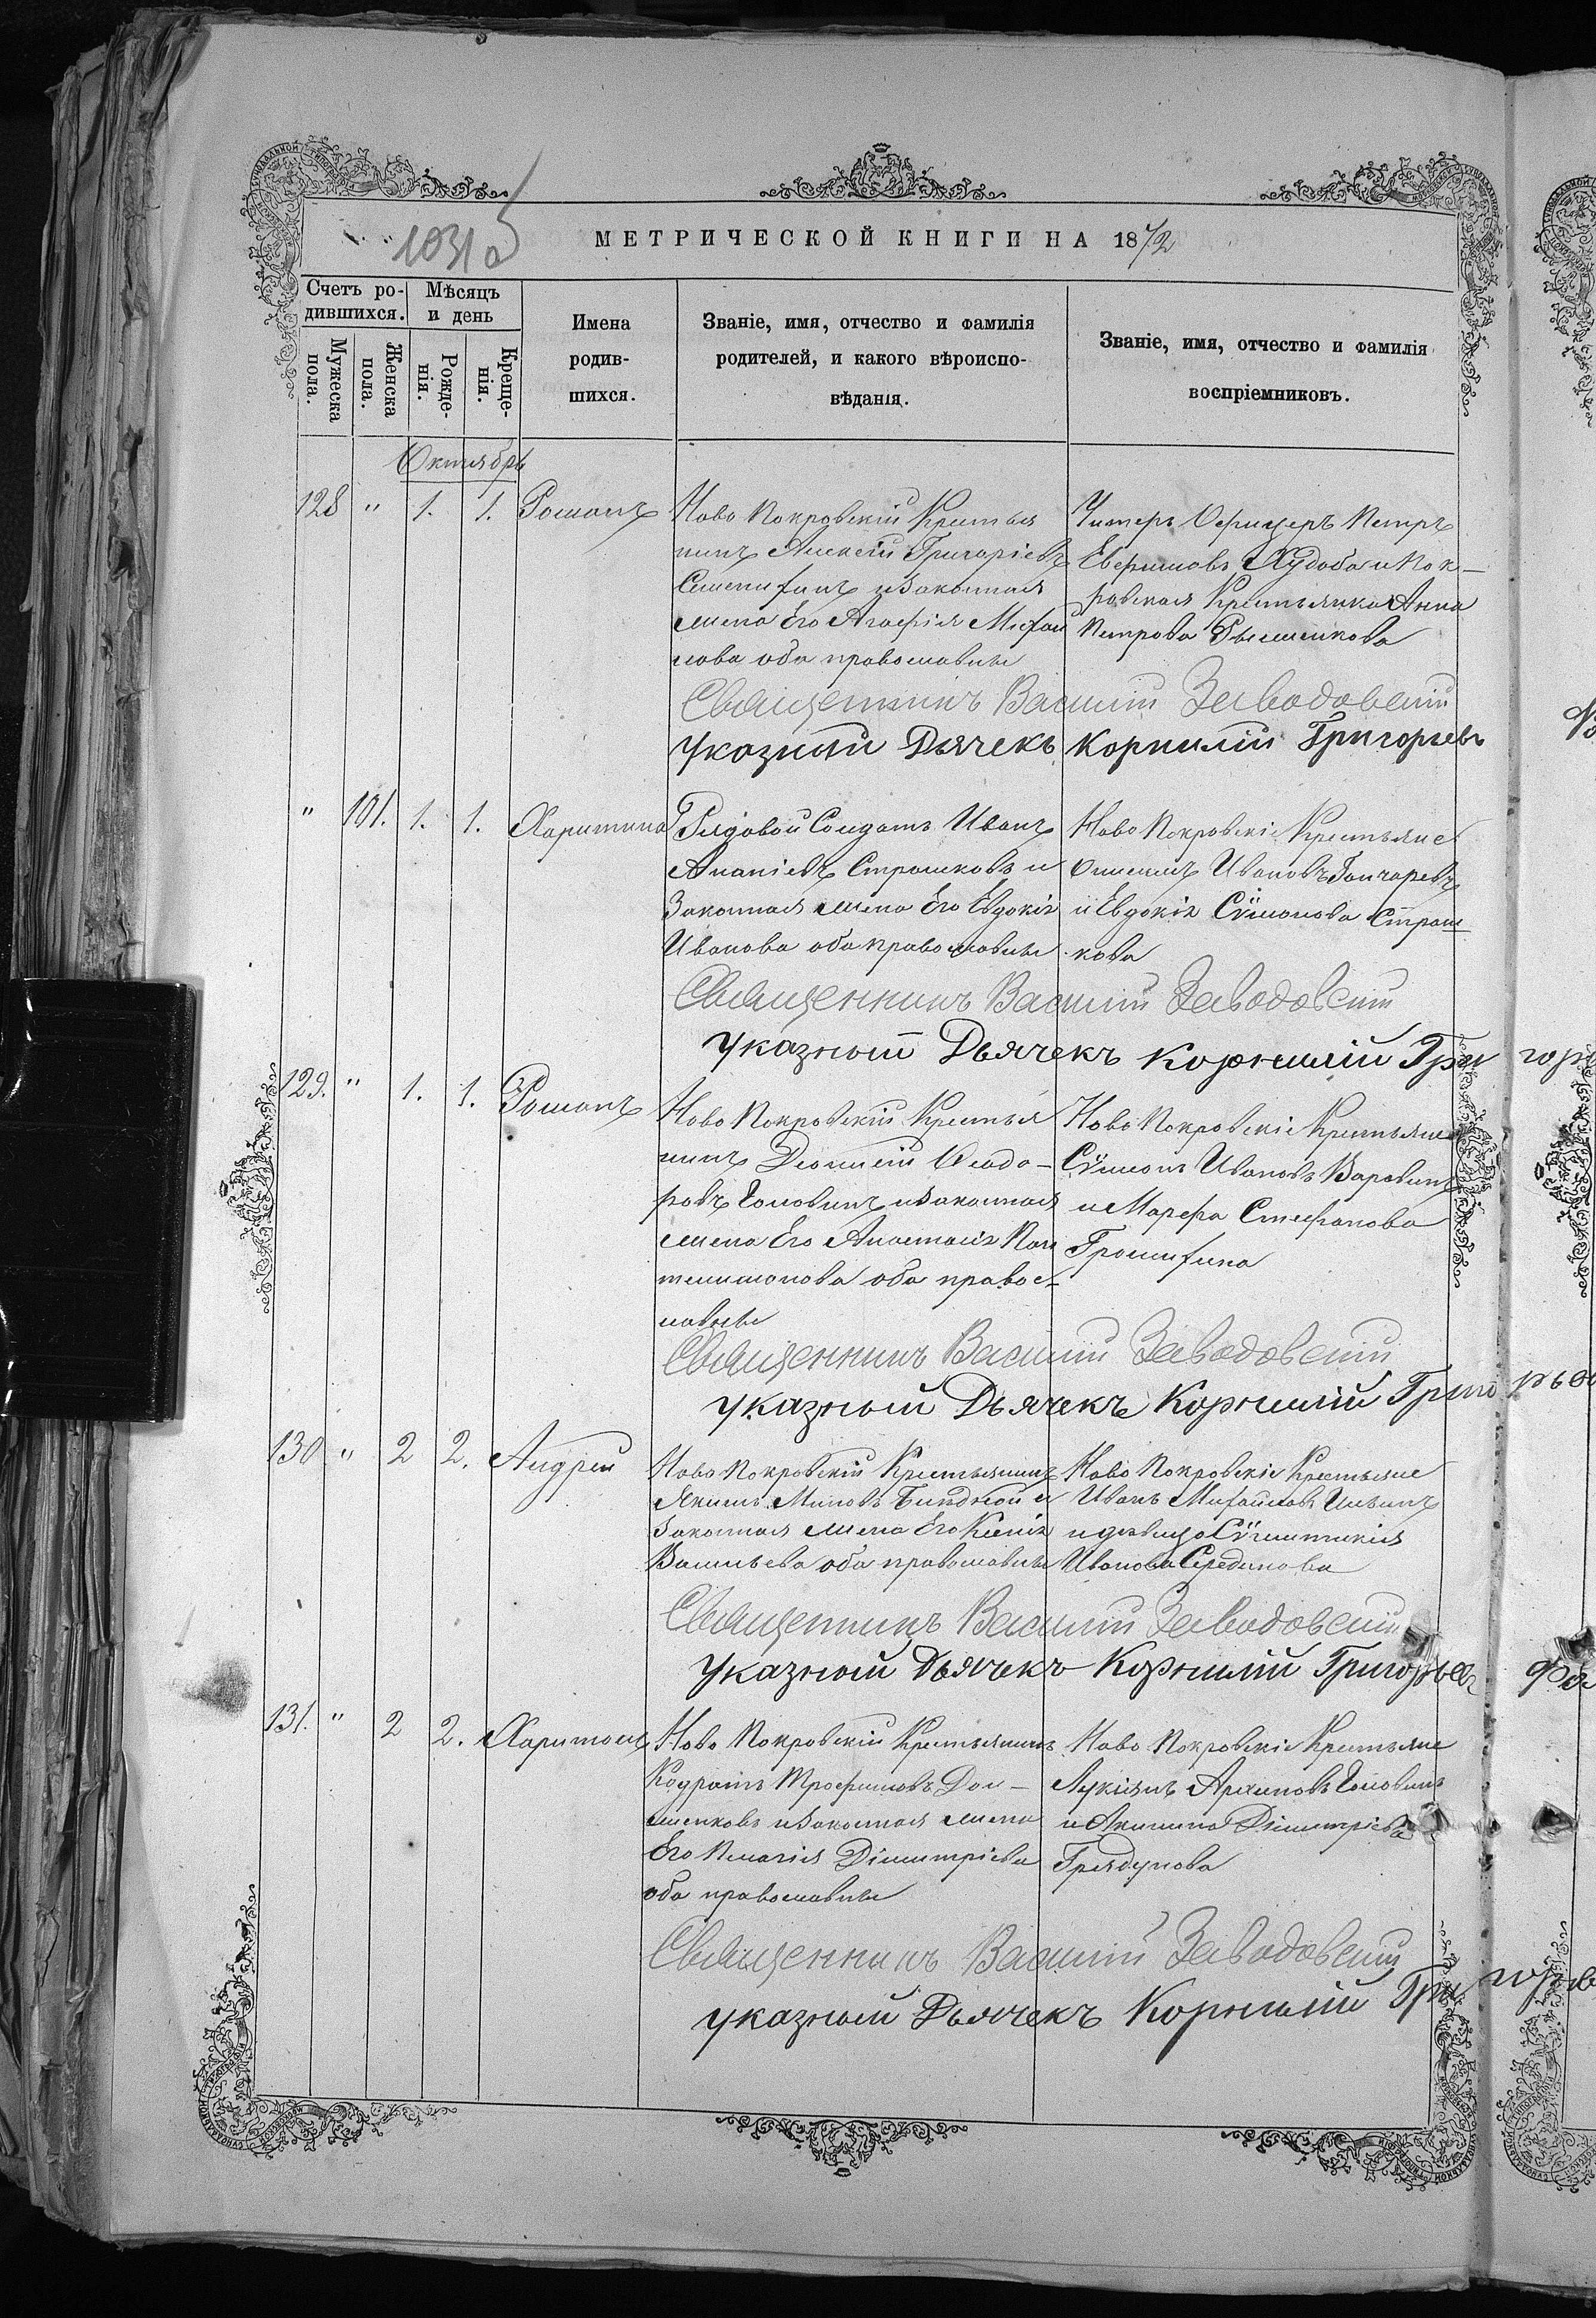 1031 об
МЕТРИЧЕСКОЙ КНИГИ НА 1872
Счетъ ро-
дившихся.
Мѣсяцъ
и день
Мужеска
пола.
Женска
пола.
Рожде-
нія.
Креще-
нія.
Имена
родив-
шихся.
Званіе, имя, отчество и фамилія
родителей, и какого вѣроиспо-
вѣданія.
Званіе, имя, отчество и фамилія
воспріемниковъ.
Октябрь
128 " 1. 1. Романъ
Ново Покровскій Крестья
нинъ Алексій Григоріевъ
и законная
жена Его Агафія Михаи
лова оба православные
Унтеръ Офицеръ Петръ
Евфимовъ Худоба и Пок-
ровская Крестьянка Анна
Петрова
Священникъ Василій Заводовскій
Указный Дьячекъ Корнилій Григорьевъ
" 101. 1. 1. Харитина
Рядовой Солдатъ Иванъ
Ананіевъ Страшковъ и
Законная жена Его Евдокія
Иванова оба православные
Ново Покровскіе Крестьяне
Ивановъ Гончаревъ
и Евдокія Сѵмонова Страш
кова
Священникъ Василій Заводовскій
Указный Дьячекъ Корнилій Гри горь
129. " 1. 1. Романъ
Ново Покровскій Крестья
нинъ Діонисій Феодо-
ровъ Головинъ и законная
жена Его Анастасія Пан
телимонова оба правос-
лавные
Ново Покровскіе Крестьяне
Сѵмонъ Ивановъ
и Марфа Стефанова
Священникъ Василій Заводовскій
Указный Дьячекъ Корнилій Григо рьев
130 " 2 2. Андрей
Ново Покровскій Крестьянинъ
Якимъ и
Законная жена Его Ксенія
Васильева оба православные
Ново Покровскіе Крестьяне
Иванъ Михайловъ
и девица Сѵнклитикія
Иванова Середина
Священникъ Василій Заводовскій
Указный Дьячекъ Корнилій Григорьевъ
131. " 2 2. Харитонъ
Ново Покровскій Крестьянинъ
Кодратъ Трофимовъ
и законная жена
Его Пелагія Димитріева
оба православные
Ново Покровскіе Крестьяне
Лукіянъ Архиповъ Головинъ
и Акилина Димитріева
Грядунова
Священникъ Василій Заводовскій
Указный Дьячекъ Корнилій Гри горьев